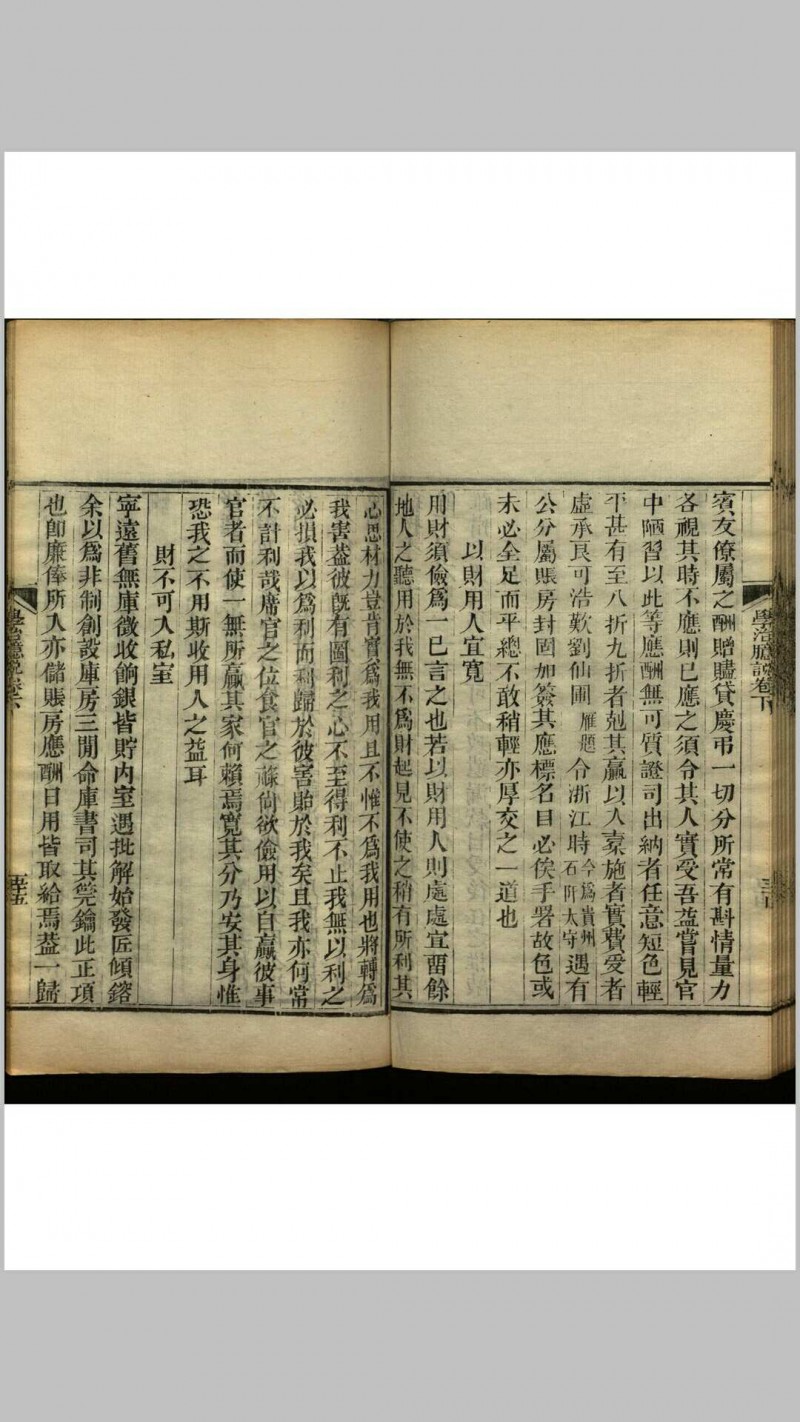 學治臆說卷下
賓友僚屬之酬贈賻貸慶弔一切分所常有斟情量力
各視其時不應則已應之須令其人實受吾益嘗見官
中陋習以此等應酬無可質證司出納者任意短色輕
平甚有至八折九折者剋其贏以入橐施者實費受者
虛承良可浩歎劉仙圃雁題令浙江時今爲貴州石阡太守遇有
公分屬賬房封固加簽其應標名目必俟手署故色或
未必全足而平總不敢稍輕亦厚交之一道也
以財用人宜寬
用財須儉爲一己言之也若以財用人則處處宜畱餘
地人之聽用於我無不爲財起見不使之稍有所利其
心思材力豈肯實爲我用且不惟不爲我用也將轉爲
我害葢彼既有圖利之心不至得利不止我無以利之
必損我以爲利而利歸於彼害貽於我矣且我亦何常
不計利哉席官之位食官之祿尙欲儉用以自贏彼事
官者而使一無所贏其家何賴焉寬其分乃安其身惟
恐我之不用斯收用人之益耳
財不可入私室
寧遠舊無庫徵收餉銀皆貯内室遇批解始發匠傾鎔
余以爲非制創設庫房三閒命庫書司其筦鑰此正項
也卽廉俸所入亦儲賬房應酬日用皆取給焉葢一歸
學治臆說卷下